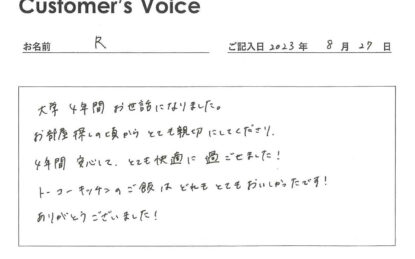 Customer's Voice
お名前 R ご記入日 2023 年 8 月 27 日
大学 4年間 お世話になりました。
お部屋探しの頃から とても親切にしてくださり、
4年間 安心して、とても快適に 過ごせました!
トーコーキッチンのご飯は どれも とても おいしかったです!
ありがとうございました!